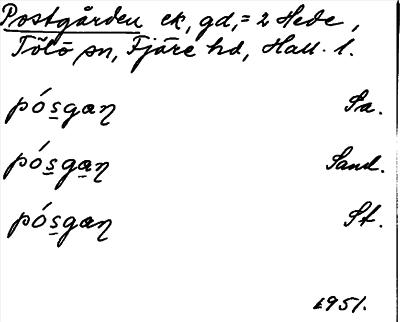 Postgården ek, gd, = 2 Hede,
Tölö sn, Fjäre hd, Hall. l.
pós̲gaꞑ Sa.
pós̲ga̲ꞑ Sand.
pós̲gaꞑ St.
1951.